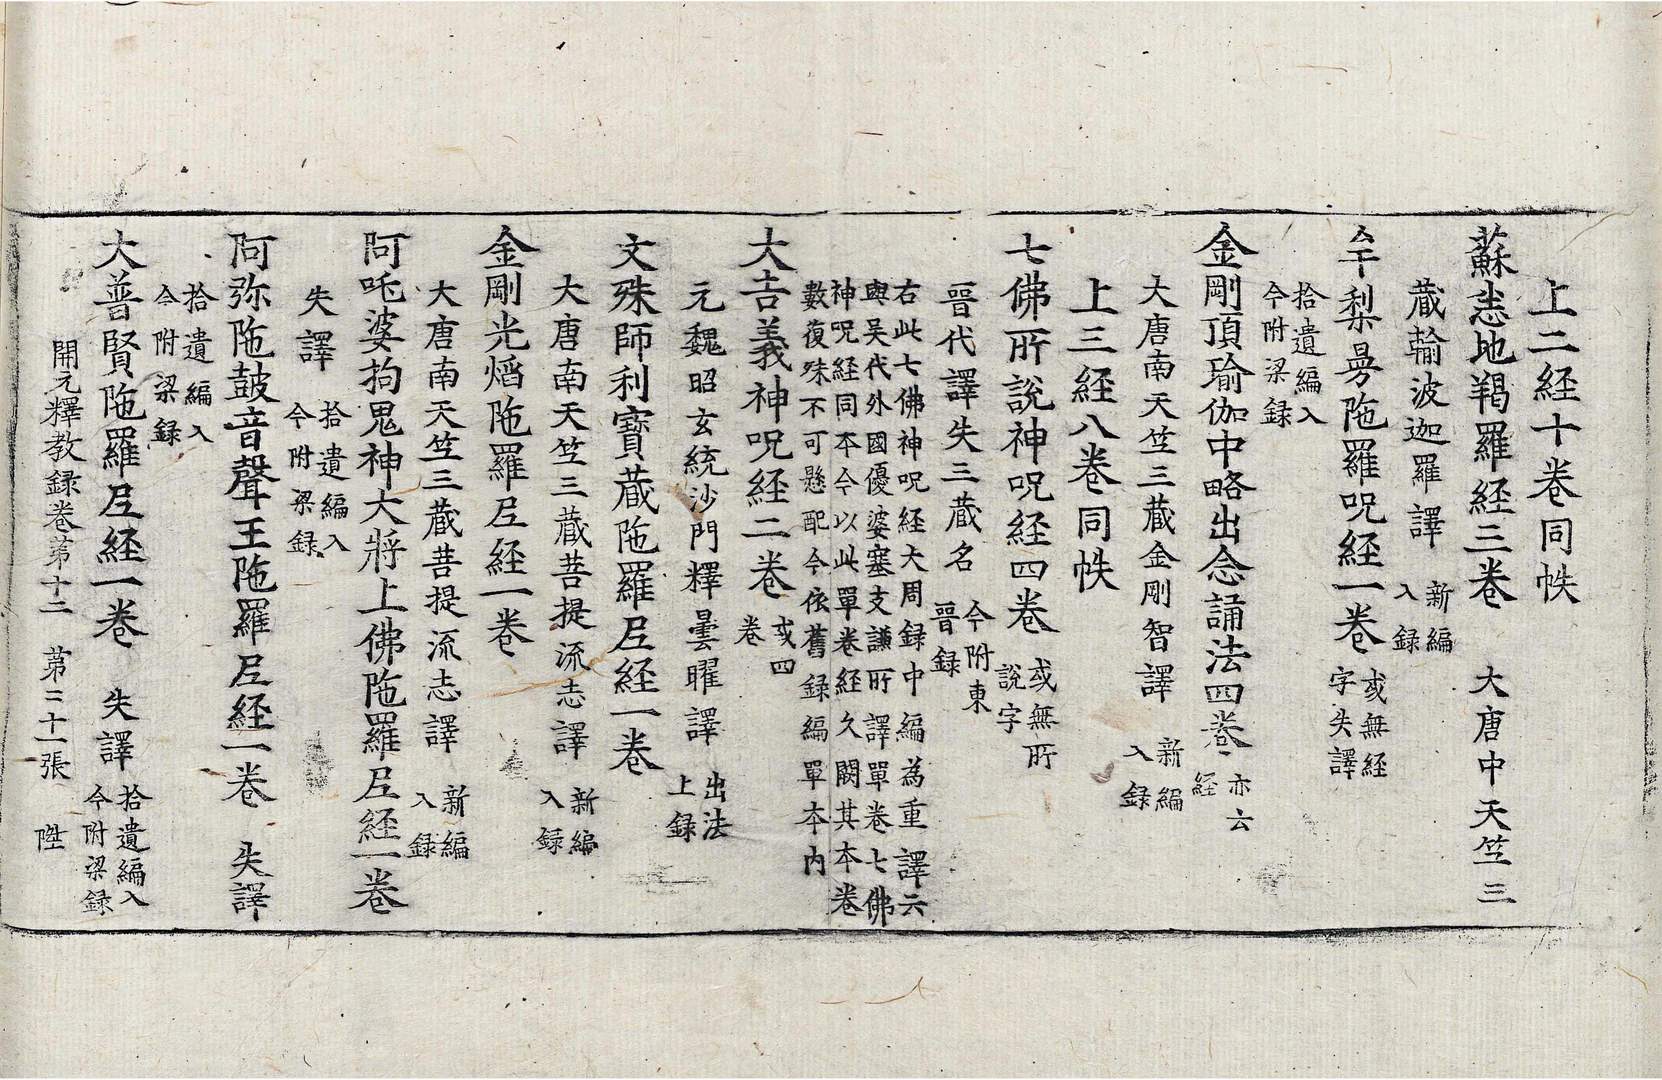 上二経十卷同帙
蘇悉地羯羅経三卷 大唐中天竺三
藏輸波迦羅譯 新編入録
牟梨曼陁羅呪経一卷 或無経字失譯
拾遺編入今附梁録
金剛頂瑜伽中略出念誦法四卷 亦云経
大唐南天竺三藏金剛智譯 新編入録
上三経八卷同帙
七佛所說神呪経四卷 或無所說字
晉代譯失三藏名 今附東晉録
右此七佛神呪経大周録中編為重譯云
與吴代外國優婆塞支謙所譯單卷七佛
神呪経同本今以此單卷経久闕其本卷
數復殊不可懸配今依舊録編單本內
大吉義神呪経二卷 或四卷
元魏昭玄統沙門釋曇曜譯 出法上録
文殊師利寶藏陁羅尼経一卷
大唐南天竺三藏菩提流志譯 新編入録
金剛光熖陁羅尼経一卷
大唐南天竺三藏菩提流志譯 新編入録
阿吒婆拘鬼神大將上佛陁羅尼経一卷
失譯 拾遺編入今附梁録
阿弥陁鼓音聲王陁羅尼経一卷 失譯
拾遺編入今附梁録
大普賢陁羅尼経一卷 失譯 拾遺編入今附梁録
開元釋教録卷第十二 第二十一張 陞